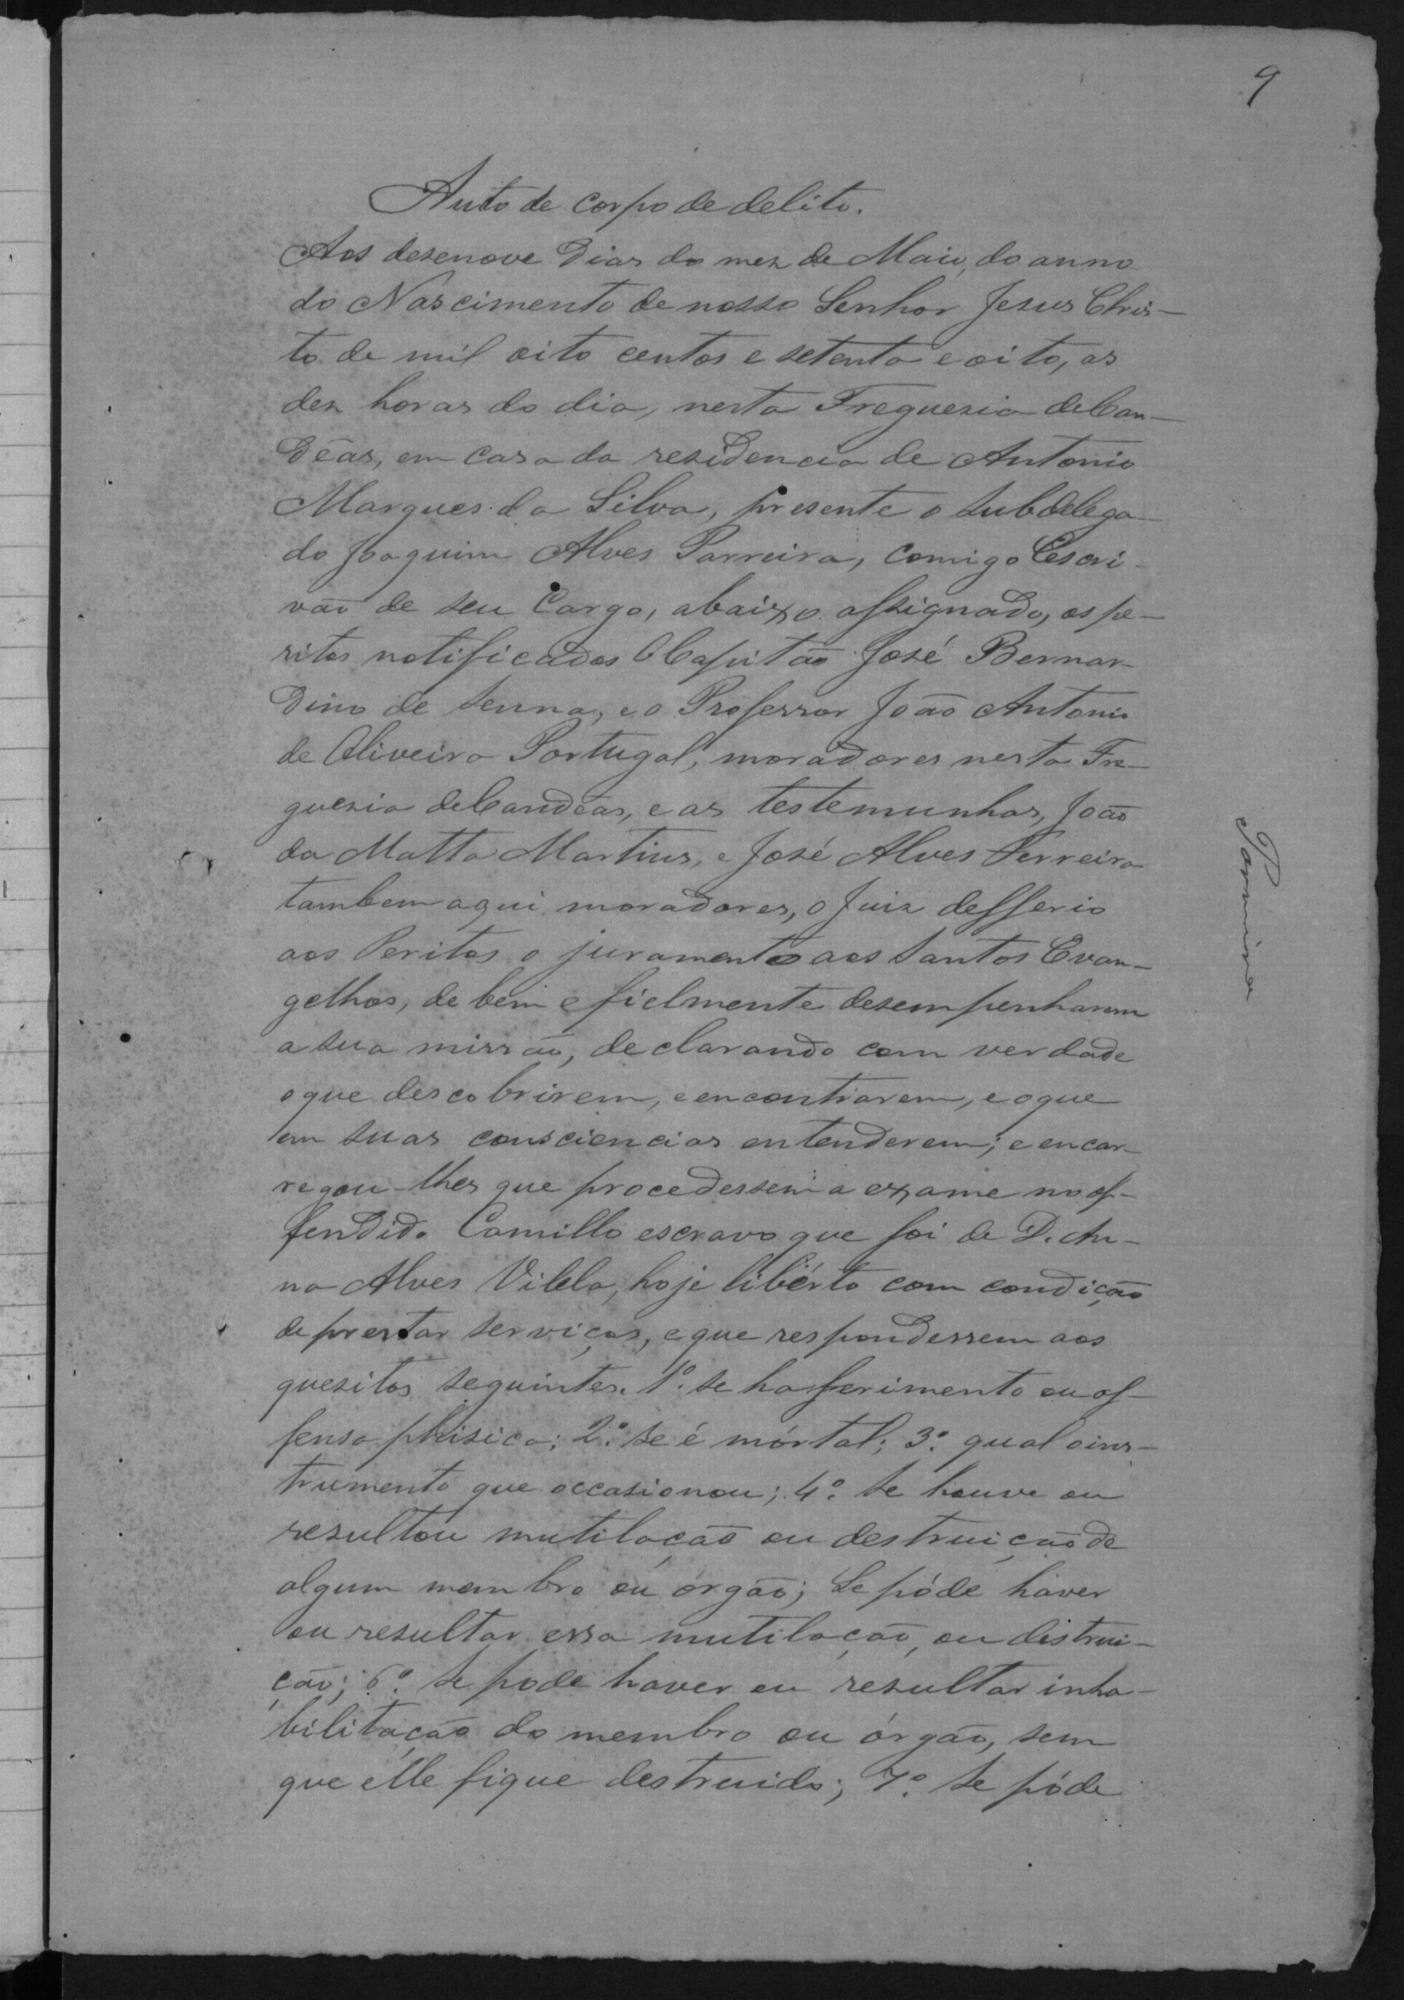 9
Auto de corpo de delito.
Aos desenove dias do mez de Maio, do anno
do Nascimento de nosso Senhor Jesus Chris-
to de mil oito centos e setenta e oito, as
dez horas do dia, nesta Freguezia de Can-
dêas, em casa da rezidencia de Antonio
Marques da Silva, presente o Subdelega-
do Joaquim Alves Parreira, comigo Escri-
vão de seu Cargo, abaixo assignado, os pe-
ritos notificados o Capitão José Bernar-
dino de Senna, e o Professor João Antonio
de Oliveira Portugal, moradores nesta Fre-
guezia de Candêas, e as testemunhas, João
da Matta Martins, e José Alves Ferreira
tambem aqui moradores, o Juiz defferio
aos Peritos o juramento aos Santos Evan-
gelhos, de bem e fielmente desempenharem
a sua missão, declarando com verdade
o que descobrirem, e encontrarem, e o que
em suas consciencias entenderem; e encar-
regou-lhes que procedessem a exame no of-
fendido Camillo escravo que foi de D. An-
na Alves Vilela, hoje libérto com condição
de prestar serviços, e que respondessem aos
quezitos seguintes. 1º. Se ha fferimento ou of-
fensa phisica; 2º. Se é mórtal; 3º. qual o ins-
trumento que occasionou; 4º. Se houve ou
rezultou mutilação ou destruição de
algum membro ou órgão; Se póde haver
ou resultar essa mutilação, ou distrui-
ção; 6º. Se pode haver ou rezultar inha-
bilitação do membro ou órgão, sem
que elle fique destruido; 7º. Se póde
Parreira